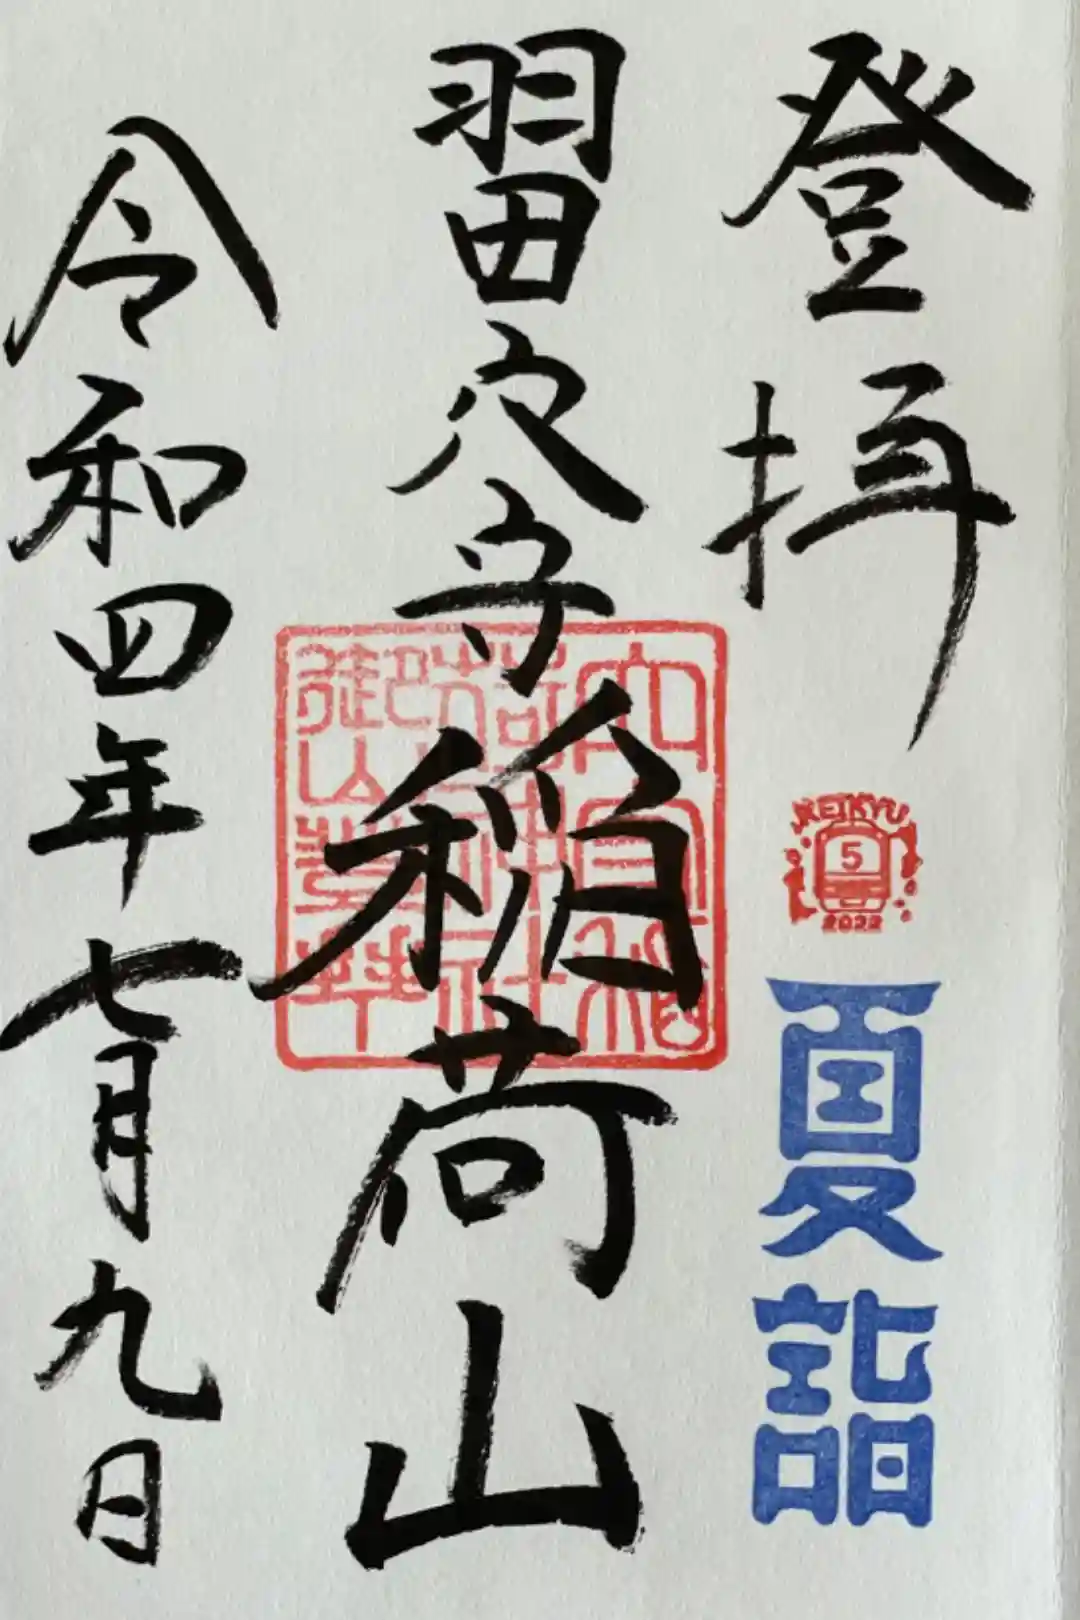 登拝
KEIKYU
5
2022
夏詣
羽田穴守稲荷山
令和四年七月九日